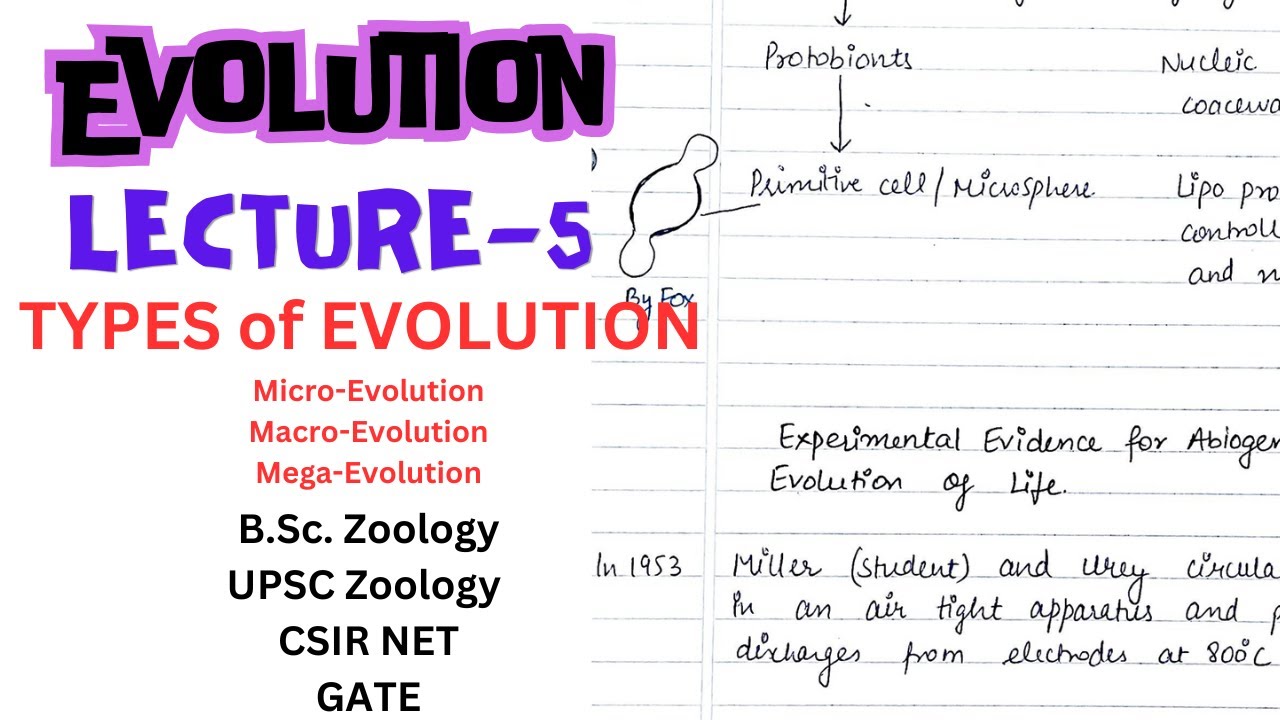 EVOLUTION
LECTURE-5
TYPES of EVOLUTION
Micro-Evolution
Macro-Evolution
Mega-Evolution
B.Sc. Zoology
UPSC Zoology
CSIR NET
GATE
Protobionts Nucleic
Primitive cell / Microsphere Lipo pro
controll
and n
By Fox
Experimental Evidence for Abiogen
Evolution of Life.
In 1953 Miller (student) and Urey circula
in an air tight apparatus and p
discharges from electrodes at 800°C